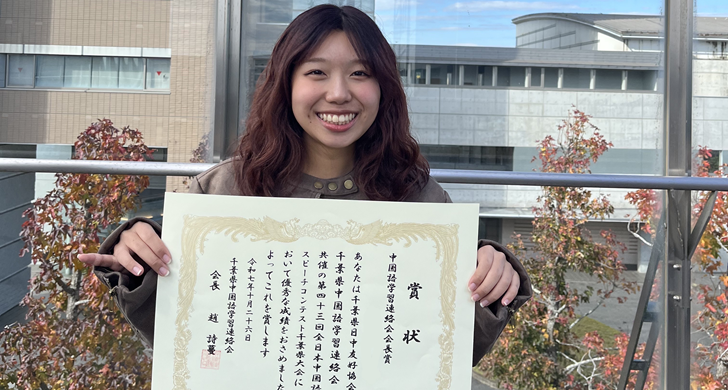 賞状
中国語学習連絡会会長賞
あなたは千葉県日中友好協会
千葉県中国語学習連絡会
共催の第四十三回全日本中国語
スピーチコンテスト千葉県大会に
おいて優秀な成績をおさめました
よってこれを賞します
令和七年十月二十六日
千葉県中国語学習連絡会
会長 趙 詩蔓